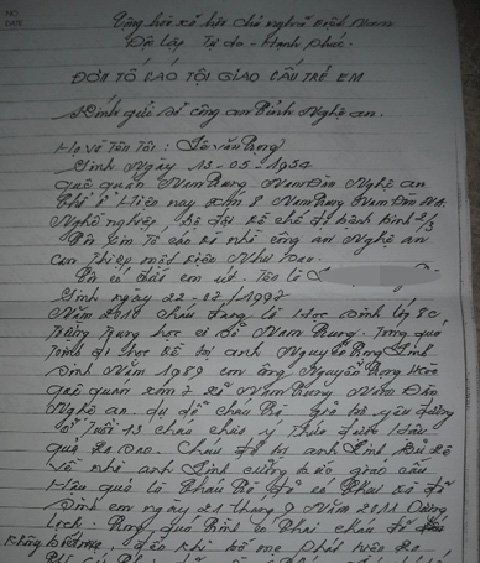 NO.
DATE
Cộng hòa xã hội chủ nghĩa Việt Nam
Độc lập Tự do - Hạnh Phúc.
ĐƠN TỐ CÁO TỘI GIAO CẤU TRẺ EM
Kính gửi Sở công an Tỉnh Nghệ an.
Họ và Tên Tôi : Lê văn
Sinh Ngày 15 - 05 - 1954
quê quán Nam Trung Nam Đàn Nghệ an
Chỗ ở Hiện nay xóm 8 Nam Trung Nam Đàn NA.
Nghề nghiệp Bộ đội chế độ bệnh binh 2/3
Tôi xin Tố cáo nhờ công an Nghệ an
can Thiệp một việc Như sau.
Tôi có cháu em út. Tên là L
Sinh ngày 22-02/1997
Năm 2010 cháu đang là học sinh lớp 8c
Trường Trung học cơ sở Nam Trung. Trong quá
trình đi học bị anh Nguyễn Trọng Linh
Sinh Năm 1989 con ông Nguyễn Trọng
quê quán xóm 7 xã Nam Trung Nam Đàn
Nghệ an. dụ dỗ cháu
Tuổi 13 cháu chưa ý thức được Hậu
quả Ra Sao. Cháu đã bị anh Linh
về nhà anh Linh cưỡng bức giao cấu
Hậu quả là cháu đã có thai và đã
Sinh em ngày 21 tháng 9 Năm 2011 Dương
Lịch. Trong quá Trình có thai cháu đã
không , đến khi bố mẹ phát hiện Ra